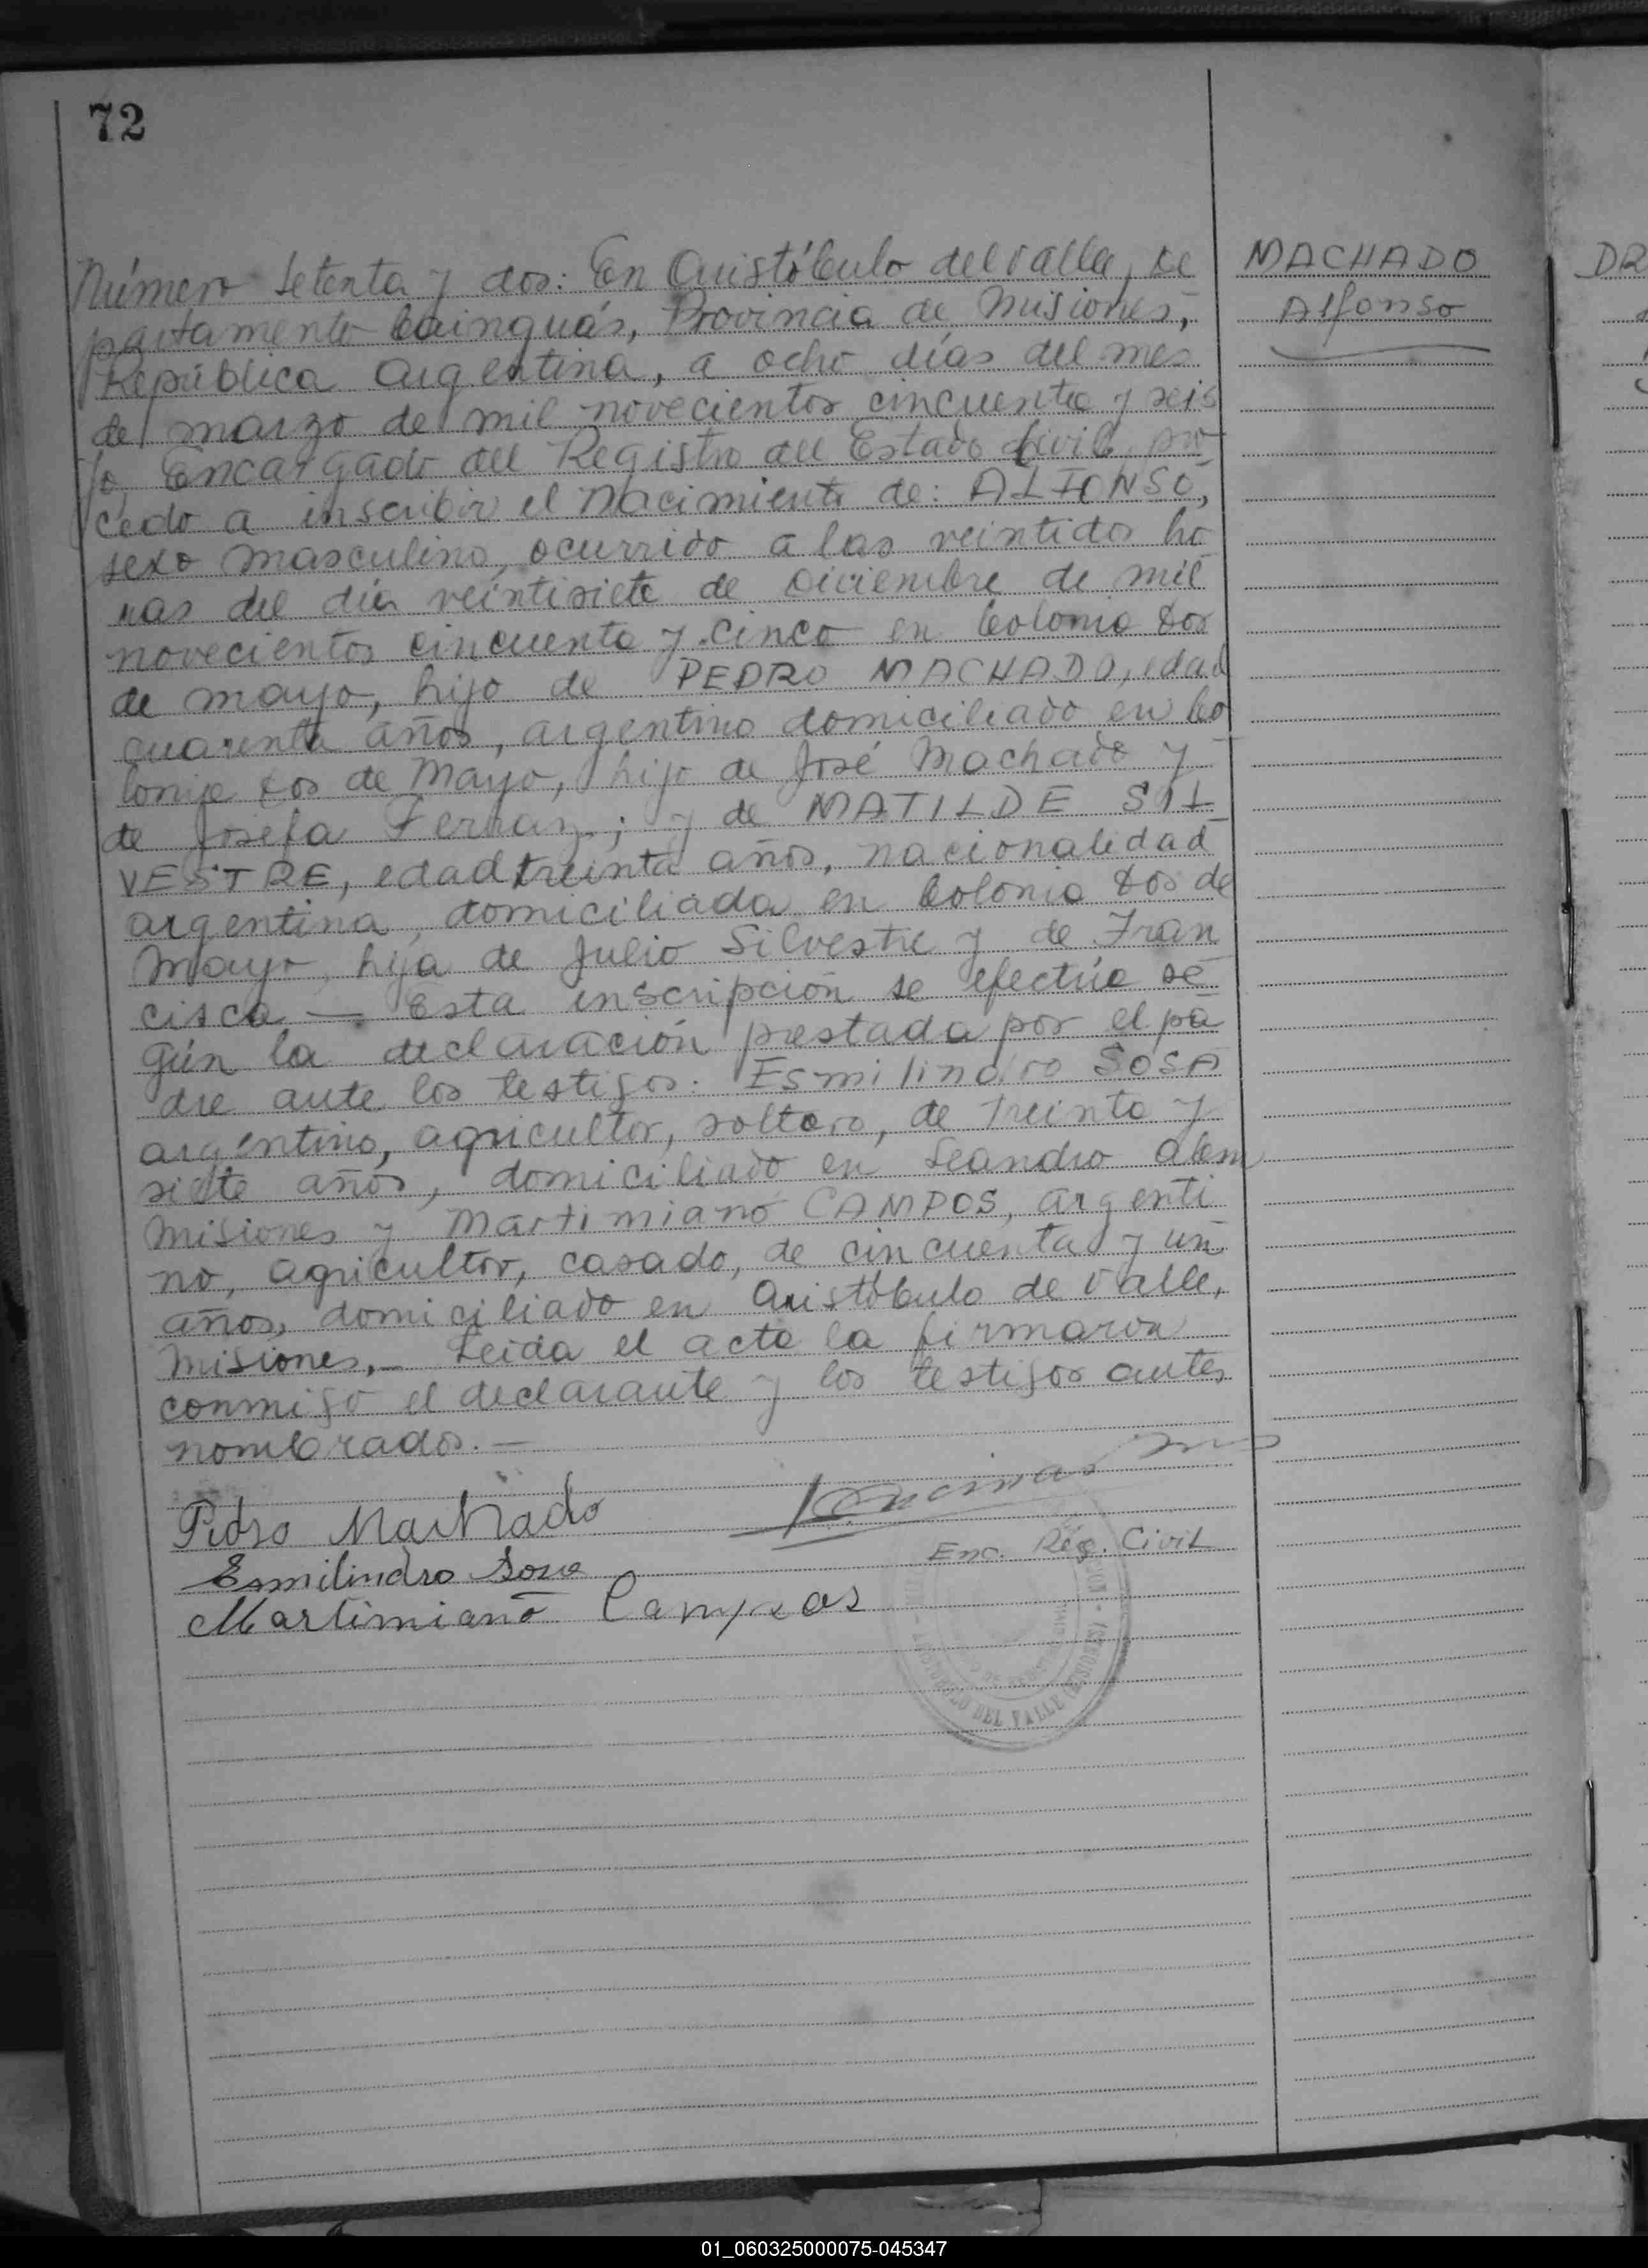 72
MACHADO
Alfonso
DR
Número Setenta y dos: En Aristóbulo del Valle, De
partamento Cainguás, Provincia de Misiones,
República Argentina, a ocho días del mes
de marzo de mil novecientos cincuenta y seis
Yo, Encargado del Registro del Estado Civil, pro
cedo a inscribir el nacimiento de: ALFONSO,
sexo masculino, ocurrido a las veintidos ho
ras del día veintisiete de Diciembre de mil
novecientos cincuenta y cinco en Colonia Dos
de mayo, hijo de PEDRO MACHADO, edad
cuarenta años, argentino domiciliado en Co
lonia Dos de Mayo, hijo de José Machado y
de Josefa Ferraz; y de MATILDE SIL
VESTRE, edad treinta años, nacionalidad
argentina, domiciliada en Colonia Dos de
Mayo, hija de Julio Silvestre y de Fran
cisca — Esta inscripción se efectúa se
gún la declaración prestada por el pa
dre ante los testigos: Esmilindro SOSA
argentino, agricultor, soltero, de treinta y
siete años, domiciliado en Leandro Alem
Misiones y Martimiano CAMPOS, argenti
no, agricultor, casado, de cincuenta y un
años, domiciliado en Aristóbulo de Valle,
Misiones.— Leída el acta la firmaron
conmigo el declarante y los testigos antes
nombrados.—
Pedro Machado
Encinas
Enc. Reg. Civil
Esmilindro Sosa
Martimiano Campos
DEL VALLE (MISIONES)
01_060325000075-045347